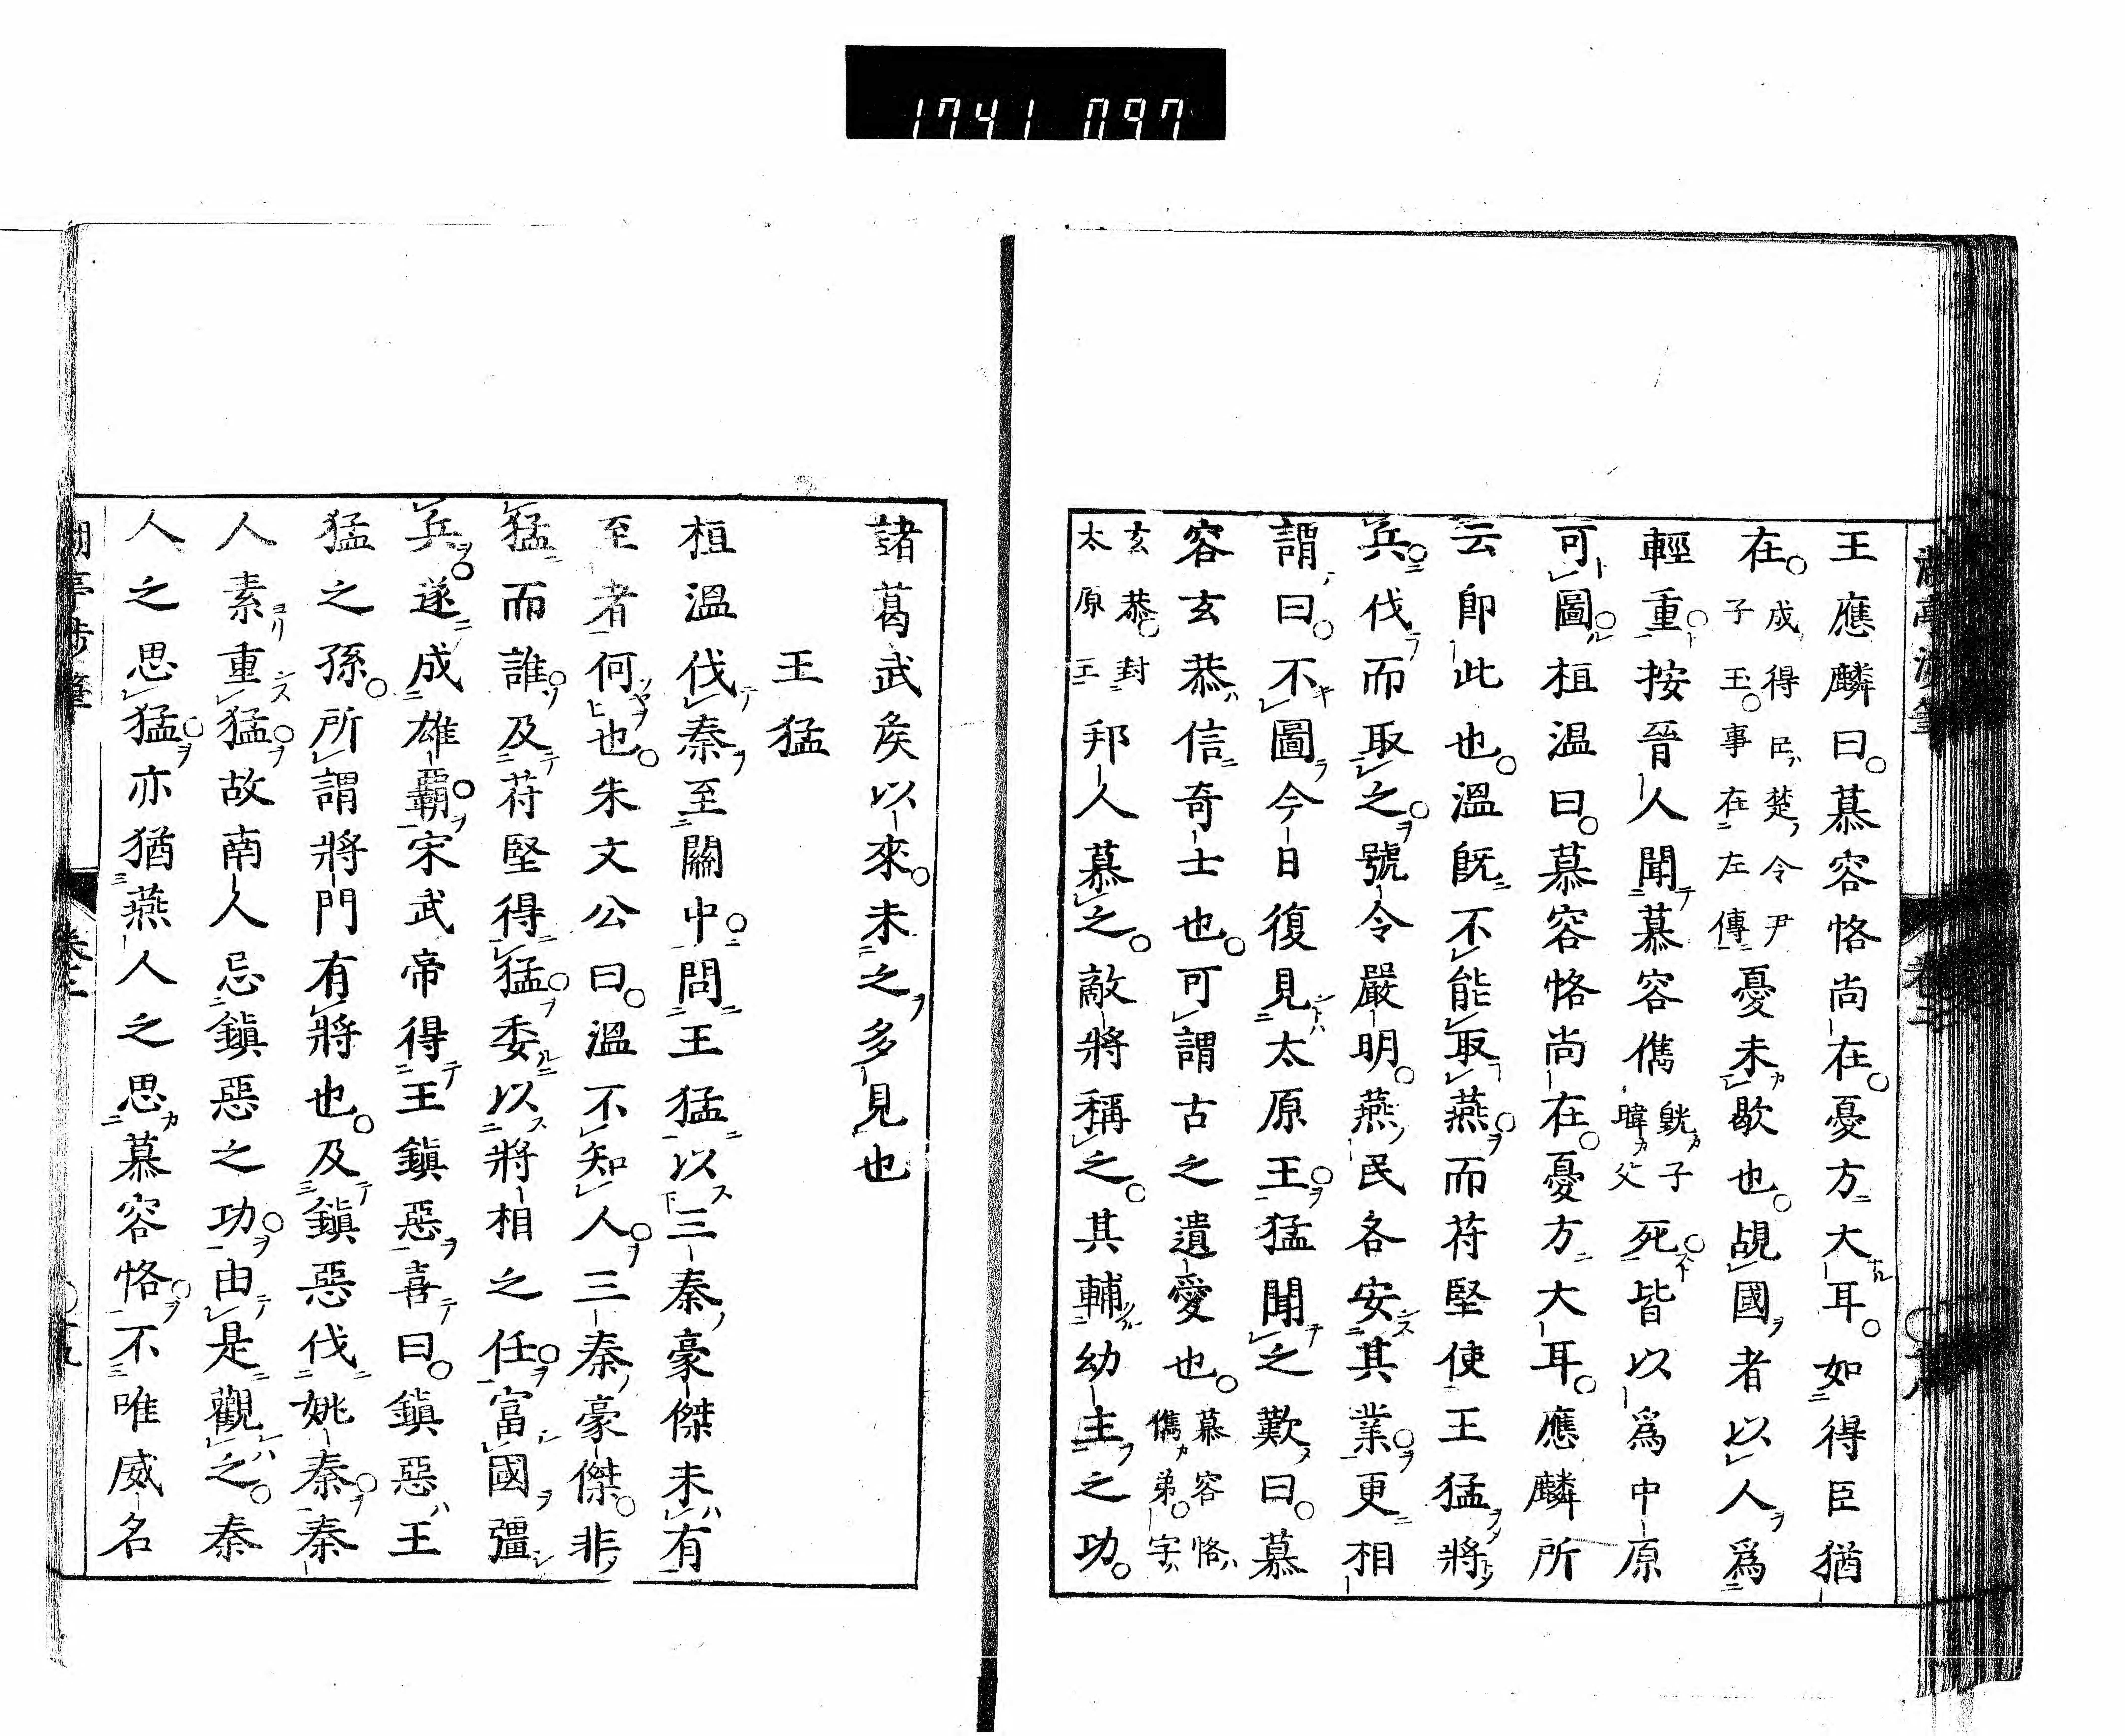 王應麟曰。慕容恪尚在。憂方大耳。如得臣猶
在。成得臣楚令尹子玉。事在左傳憂未歇也。覘國者以人爲
輕重。按晉人聞慕容儁皝子暐父死。皆以爲中原
可圖。桓溫曰。慕容恪尚在。憂方大耳。應麟所
云卽此也。溫旣不能取燕。而苻堅使王猛將
兵。伐而取之。號令嚴明。燕民各安其業。更相
謂曰。不圖今日復見太原王。猛聞之歎曰。慕
容玄恭信奇士也。可謂古之遺愛也。慕容恪儁弟。字
玄恭。封太原王邦人慕之。敵將稱之。其輔幼主之功。
諸葛武矦以來。未之多見也
王猛
桓溫伐秦至關中。問王猛以三秦豪傑未有
至者何也。朱文公曰。溫不知人。三秦豪傑。非
猛而誰。及苻堅得猛。委以將相之任。富國彊
兵。遂成雄霸。宋武帝得王鎭惡喜曰。鎭惡王
猛之孫。所謂將門有將也。及鎭惡伐姚秦。秦
人素重猛。故南人忌鎭惡之功。由是觀之。秦
人之思猛。亦猶燕人之思慕容恪。不唯威名
湖亭涉筆
卷二